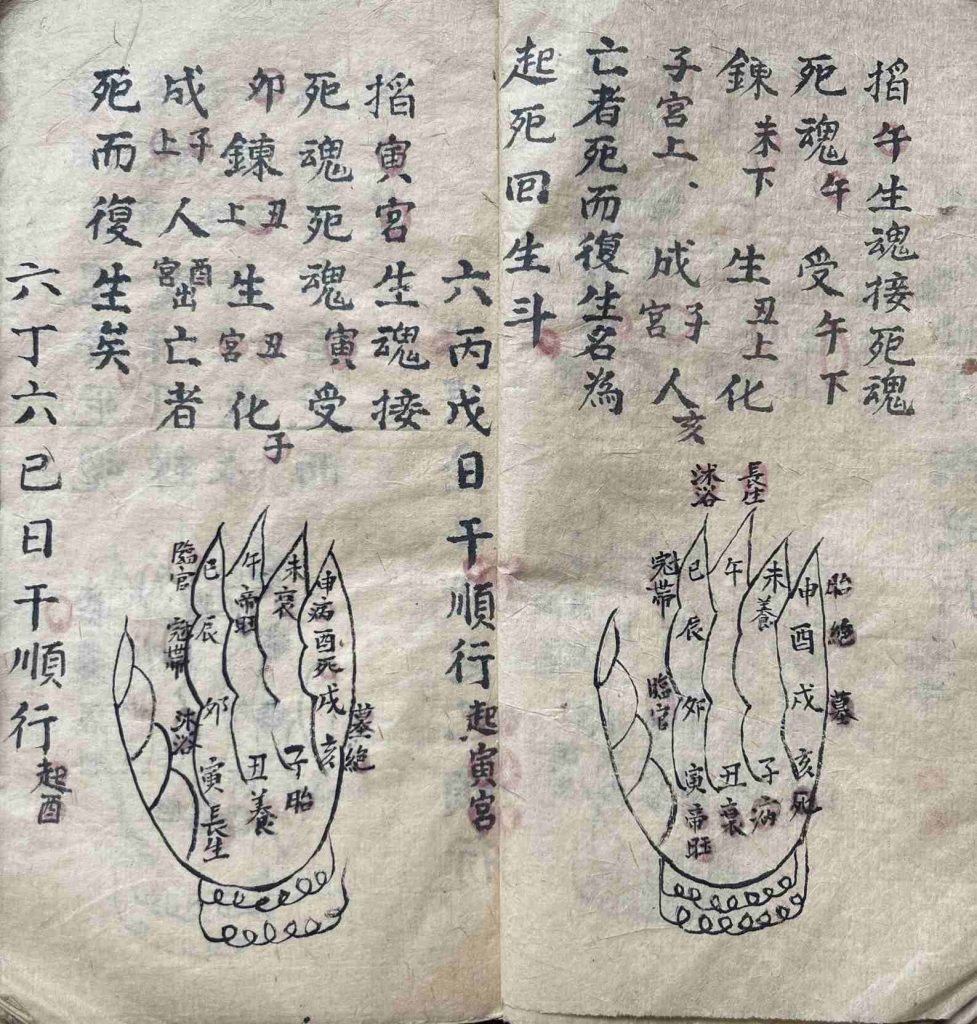 掐午生魂接死魂
死魂午受午下
鍊未下生丑上化
子宮上、成子宮人亥
亡者死而復生名為
起死回生斗
長生
沐浴
冠帶
臨官
巳
辰
卯
寅帝旺
午
丑衰
未養
子病
申
酉
戌
亥死
胎
絕
墓
六丙戊日干順行起寅宮
掐寅宮生魂接
死魂死魂寅受
卯鍊丑上生丑宮化子
成子上人酉宮出亡者
死而復生矣
臨官
冠帶
沐浴
巳
辰
卯
寅長生
午帝旺
丑養
未衰
子胎
申病酉死戌
亥
墓
絕
六丁六己日干順行起酉